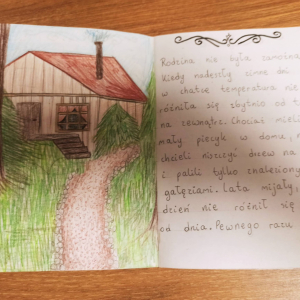 Rodzina nie była zamożna
Kiedy nadeszły zimne dni
w chatce temperatura nie
różniła się zbytnio od t
na zewnątrz. Chociaż mieli
mały piecyk w domu,
chcieli niszczyć drzew na
i palili tylko znalezion
gałęziami. Lata mijały,
dzień nie różnił się
od dnia. Pewnego razu